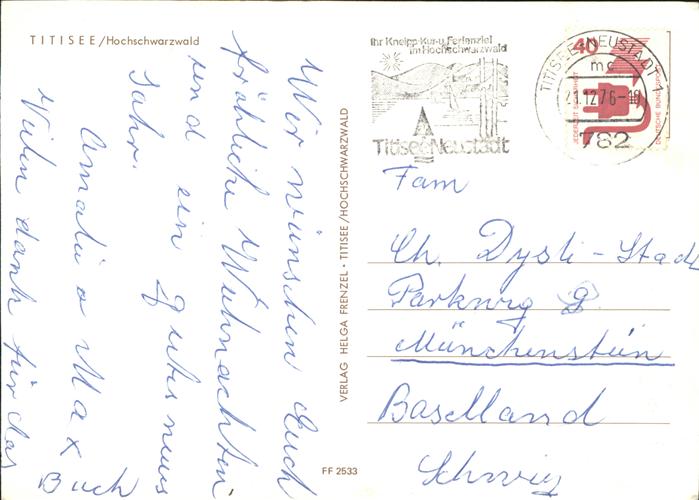 TITISEE/Hochschwarzwald
Wir wünschen Euch
fröhliche Weihnachten
und ein gutes neues
Jahr.
Amalia u Max
Vielen dank für das Buch
VERLAG HELGA FRENZEL · TITISEE/HOCHSCHWARZWALD
FF 2533
Ihr Kneipp-Kur-u. Ferienziel
im Hochschwarzwald
Titisee Neustadt
TITISEE-NEUSTADT 1
mc
12.76-18
782
40
DEUTSCHE BUNDESPOST
Fam
Ch. Dysli-Stad
Parkweg 9
Münchenstein
Baselland
Schweiz